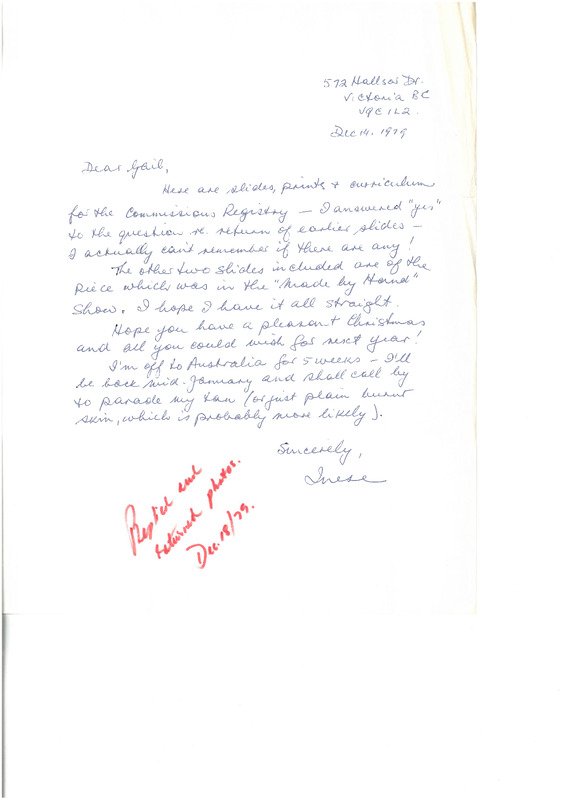 572 Hallsor Dr.
Victoria BC
V9C 1L2.
Dec 14. 1979
Dear Gail,
Here are slides, prints + curriculum
for the Commissions Registry — I answered "yes"
to the question re. return of earlier slides -
I actually can't remember if there are any!
The other two slides included are of the
piece which was in the "Made by Hand"
Show. I hope I have it all straight.
Hope you have a pleasant Christmas
and all you could wish for next year!
I'm off to Australia for 5 weeks - I'll
be back mid-January and shall call by
to parade my tan (or just plain burnt
skin, which is probably more likely).
Sincerely,
Inese
Replied and
returned photos.
Dec. 18/79.